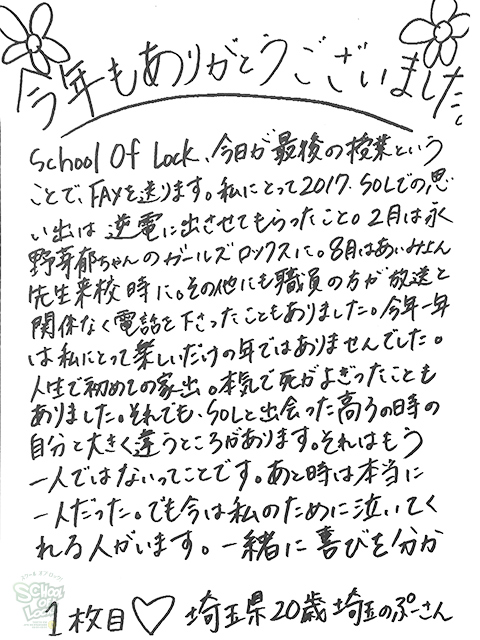 今年もありがとうございました。
School Of Lock、今日が最後の授業という
ことで、FAXを送ります。私にとって2017. SOLでの思
い出は逆電に出させてもらったこと。2月は永
野芽郁ちゃんのガールズロックスに。8月はあいみょん
先生来校時に。その他にも職員の方が放送と
関係なく電話を下さったこともありました。今年一年
は私にとって楽しいだけの年ではありませんでした。
人生で初めての家出。本気で死がよぎったことも
ありました。それでも、SOLと出会った高3の時の
自分と大きく違うところがあります。それはもう
一人ではないってことです。あと時は本当に
一人だった。でも今は私のために泣いてく
れる人がいます。一緒に喜びを分か
スクール オブ ロック!
SCHOOL OF LOCK!
1枚目♡ 埼玉県20歳埼玉のぷーさん